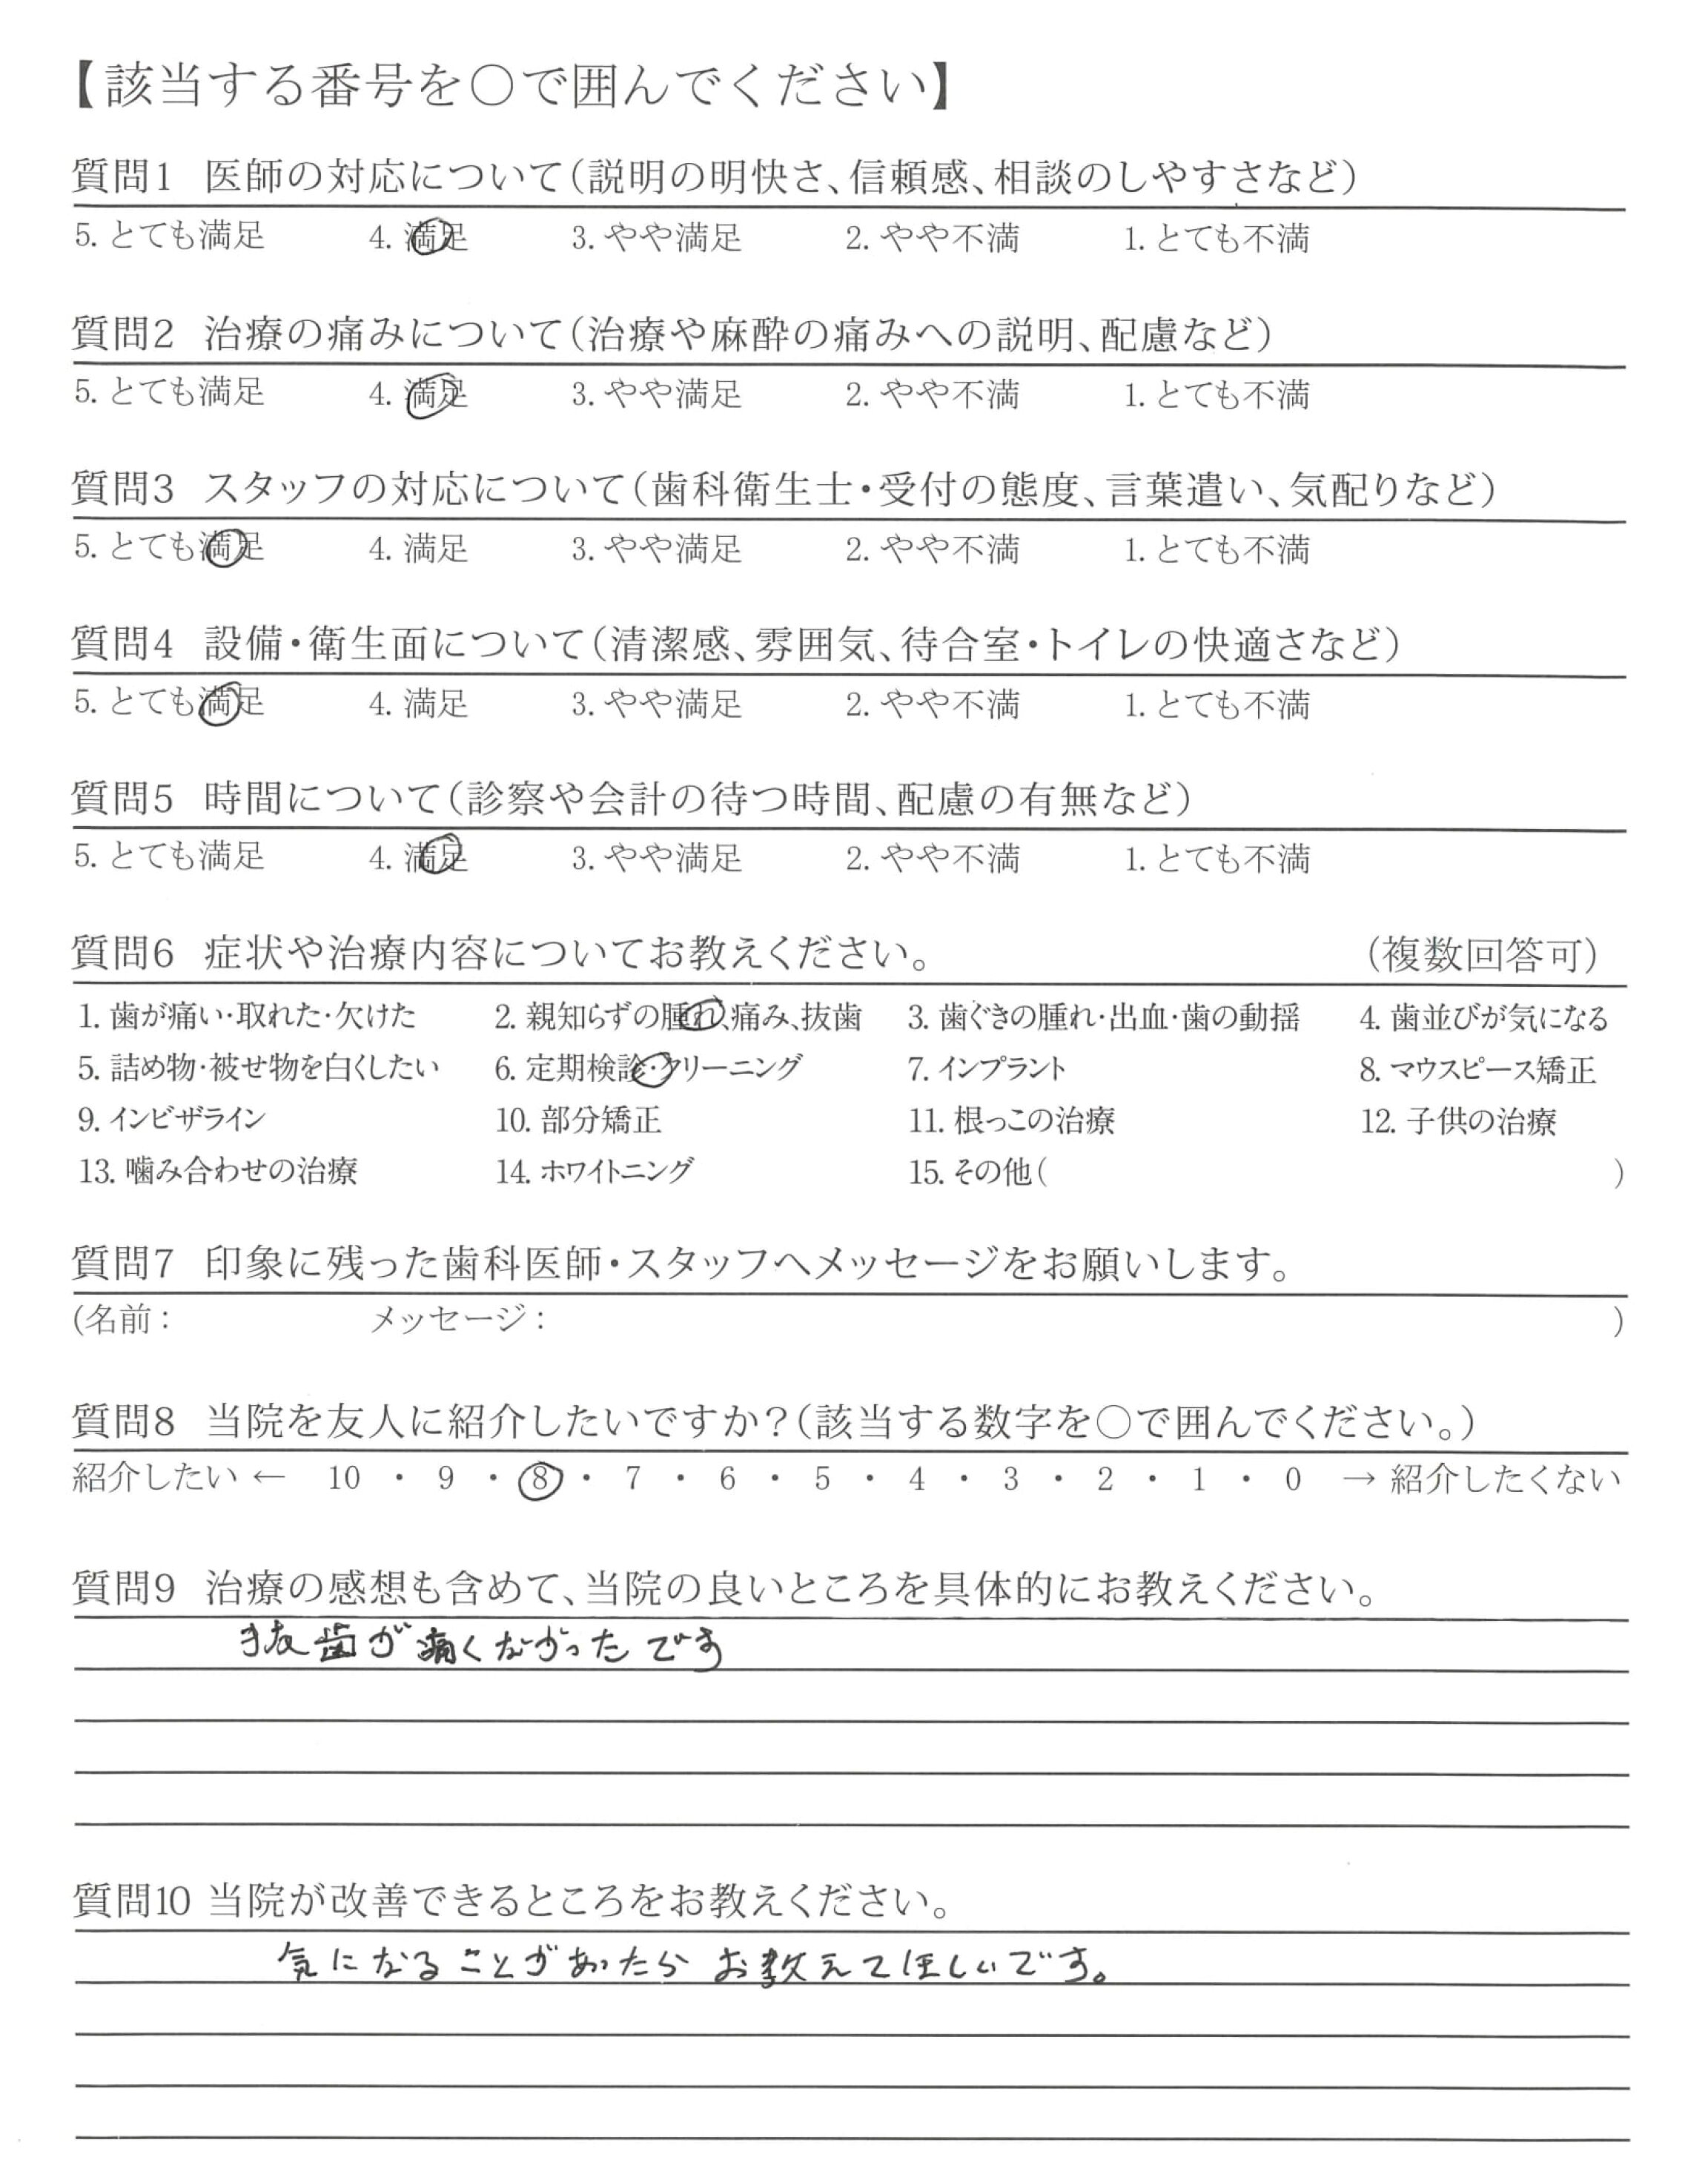 【該当する番号を○で囲んでください】
質問1 医師の対応について(説明の明快さ、信頼感、相談のしやすさなど)
5. とても満足 4. 満足 3. やや満足 2. やや不満 1. とても不満
質問2 治療の痛みについて(治療や麻酔の痛みへの説明、配慮など)
5. とても満足 4. 満足 3. やや満足 2. やや不満 1. とても不満
質問3 スタッフの対応について(歯科衛生士・受付の態度、言葉遣い、気配りなど)
5. とても満足 4. 満足 3. やや満足 2. やや不満 1. とても不満
質問4 設備・衛生面について(清潔感、雰囲気、待合室・トイレの快適さなど)
5. とても満足 4. 満足 3. やや満足 2. やや不満 1. とても不満
質問5 時間について(診察や会計の待つ時間、配慮の有無など)
5. とても満足 4. 満足 3. やや満足 2. やや不満 1. とても不満
質問6 症状や治療内容についてお教えください。 (複数回答可)
1. 歯が痛い・取れた・欠けた 2. 親知らずの腫れ、痛み、抜歯 3. 歯ぐきの腫れ・出血・歯の動揺 4. 歯並びが気になる
5. 詰め物・被せ物を白くしたい 6. 定期検診・クリーニング 7. インプラント 8. マウスピース矯正
9. インビザライン 10. 部分矯正 11. 根っこの治療 12. 子供の治療
13. 噛み合わせの治療 14. ホワイトニング 15. その他( )
質問7 印象に残った歯科医師・スタッフへメッセージをお願いします。
(名前: メッセージ: )
質問8 当院を友人に紹介したいですか?(該当する数字を○で囲んでください。)
紹介したい ← 10 ・ 9 ・ 8 ・ 7 ・ 6 ・ 5 ・ 4 ・ 3 ・ 2 ・ 1 ・ 0 → 紹介したくない
質問9 治療の感想も含めて、当院の良いところを具体的にお教えください。
抜歯が痛くなかったです
質問10 当院が改善できるところをお教えください。
気になることがあったらお教えてほしいです。